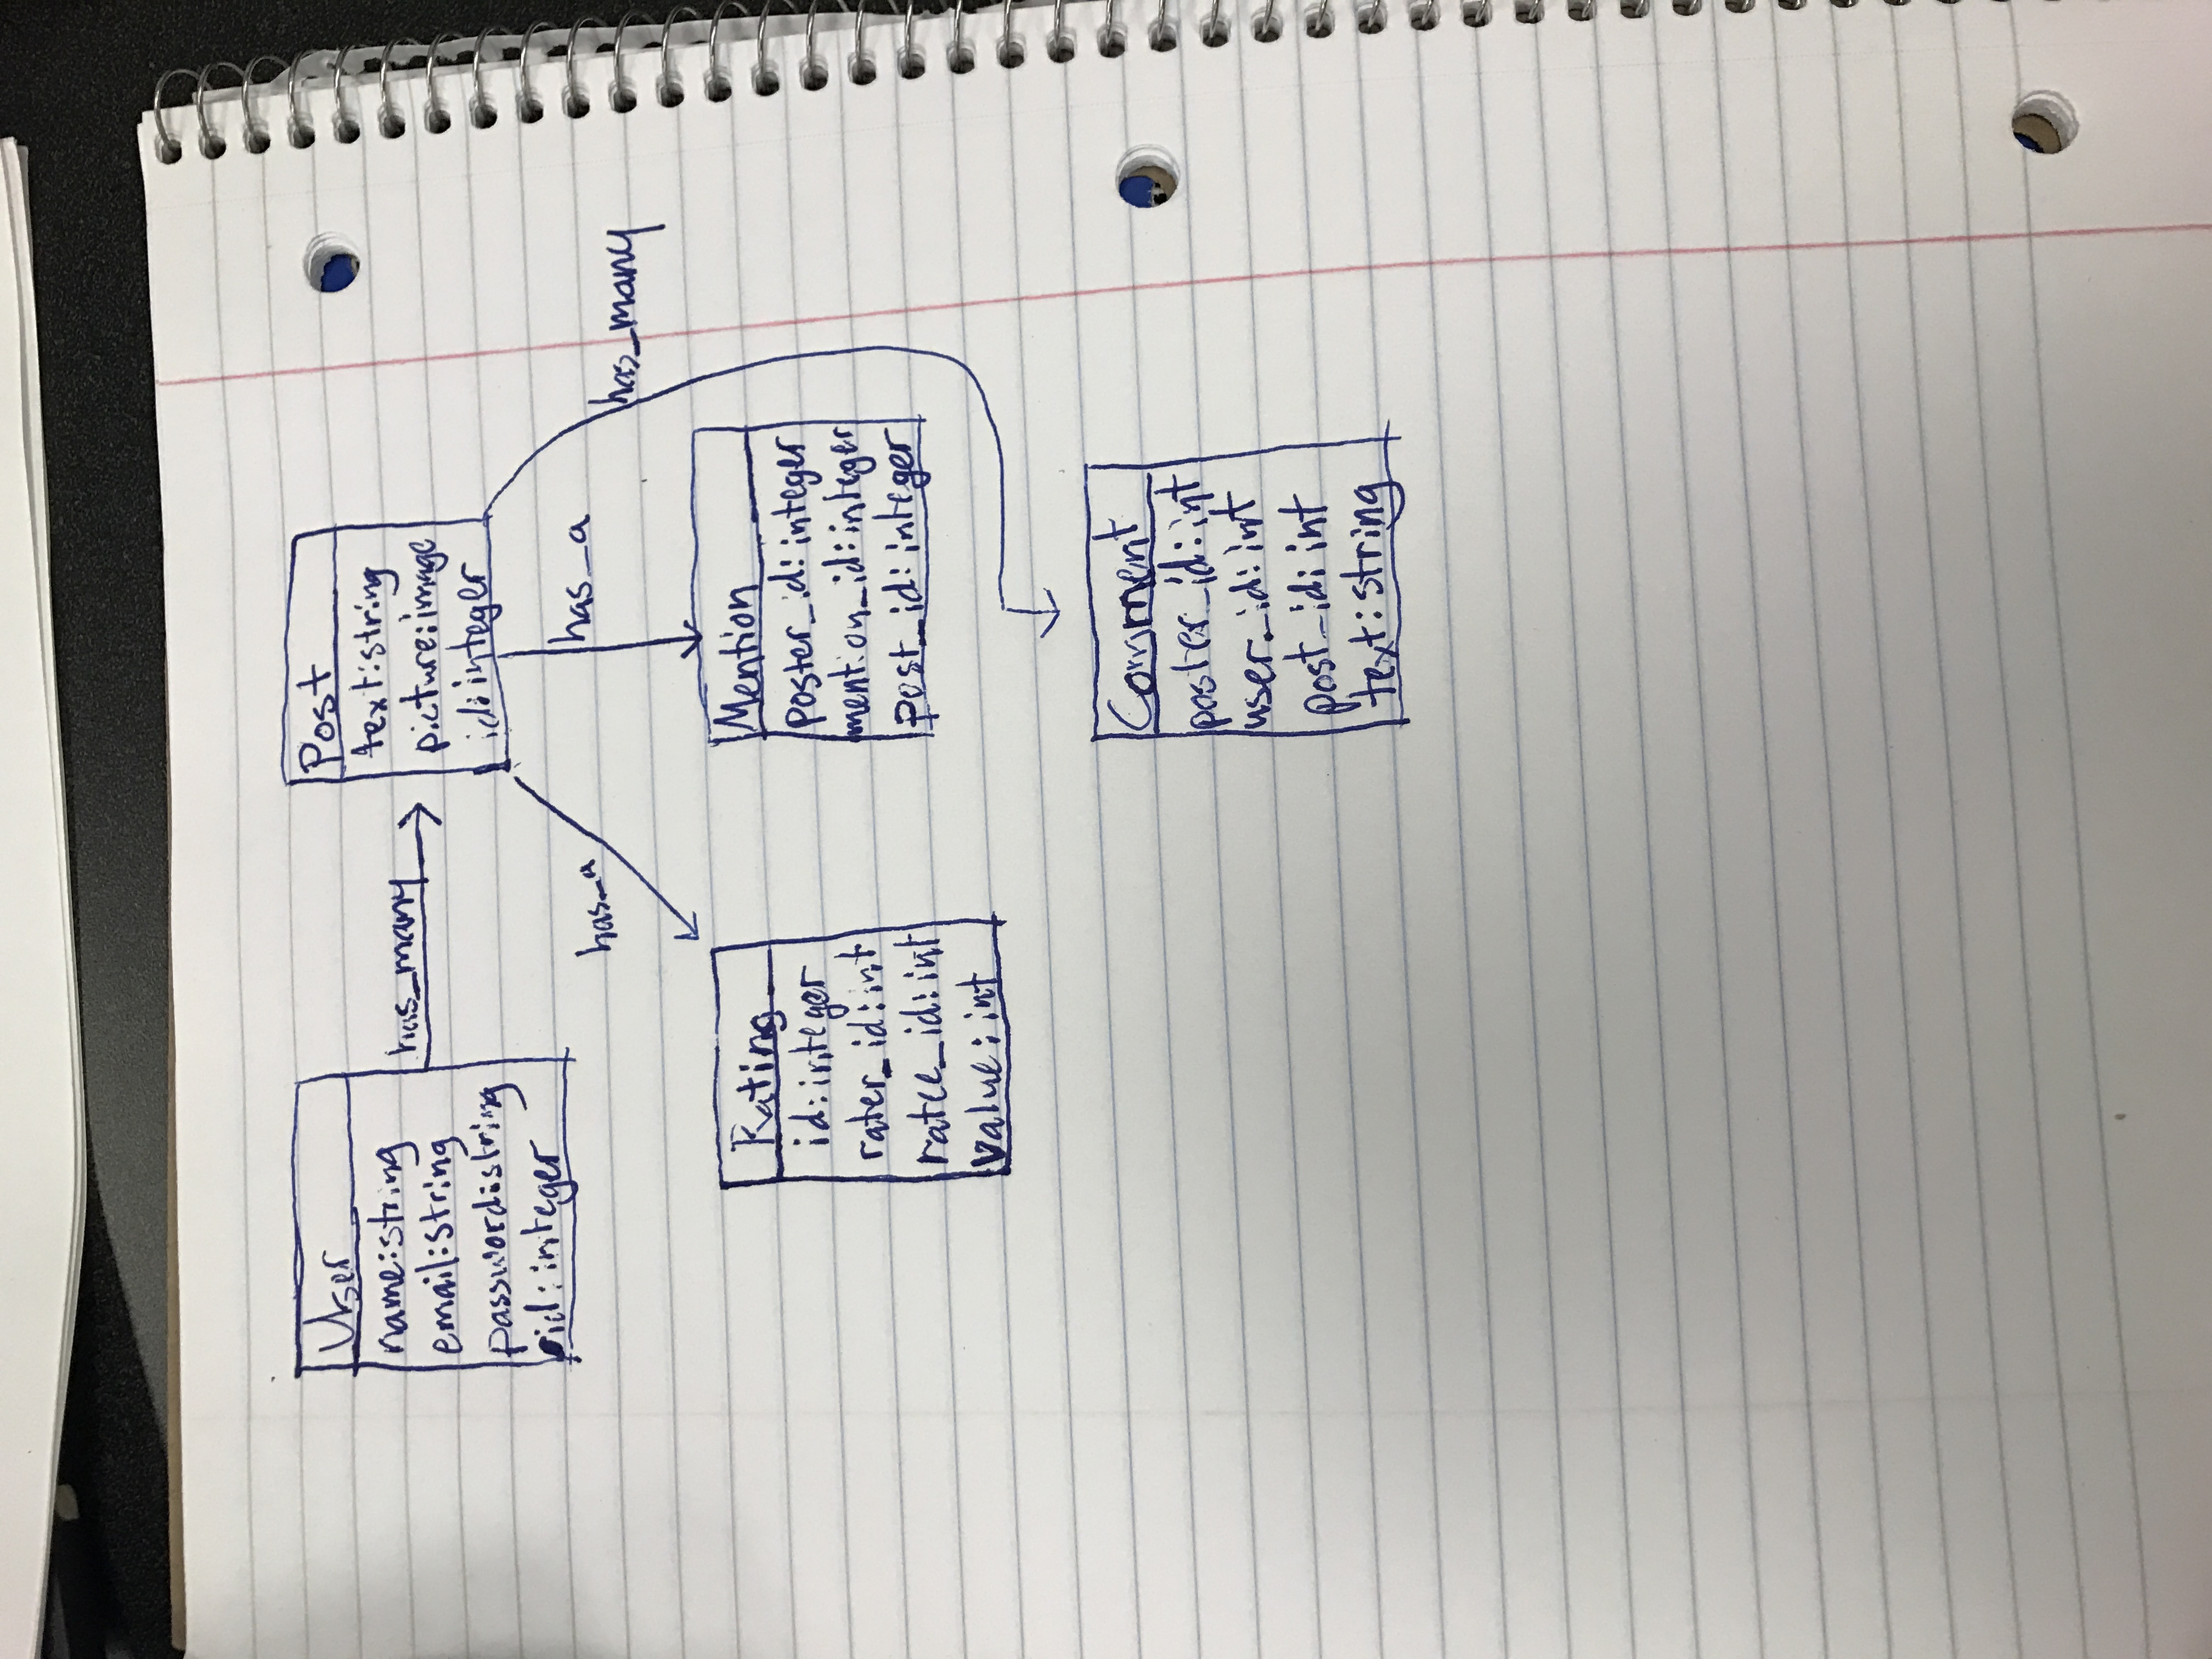 User
name:string
email:string
password:string
id:integer
has_many
Post
text:string
picture:image
id:integer
has_a
has_a
has_many
Rating
id:integer
rater_id:int
ratee_id:int
value:int
Mention
poster_id:integer
mention_id:integer
post_id:integer
Comment
poster_id:int
user_id:int
post_id:int
text:string